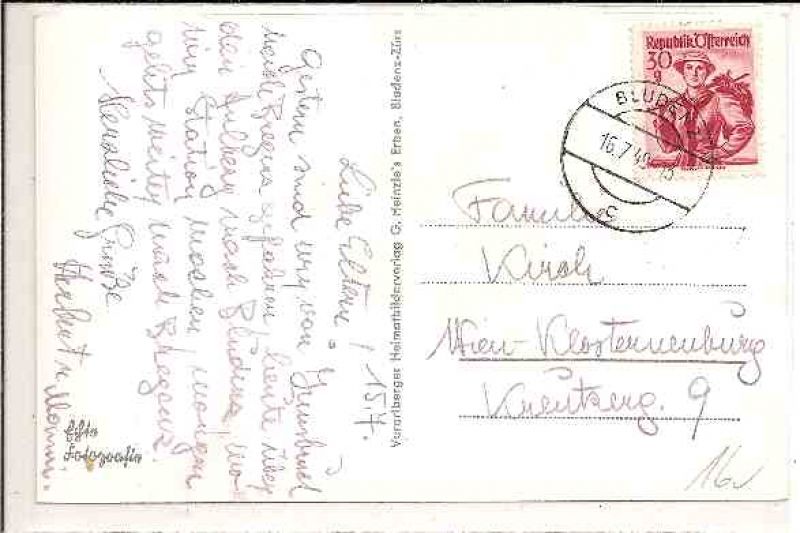 Liebe Eltern! 15.7.
Gestern sind wir von Innsbruck
gefahren, heute über
den Arlberg nach Bludenz, wo
wir Station machen, morgen
gehts weiter nach Bregenz.
Herzliche Grüße
Herbert u.
Echte
Fotografie
Vorarlberger Heimatbilderverlag G. Heinzle's Erben, Bludenz-Zürs
Republik Österreich
30
g
BLUDENZ
16.7.49
c
Familie
Wien-Klosterneuburg
9
16